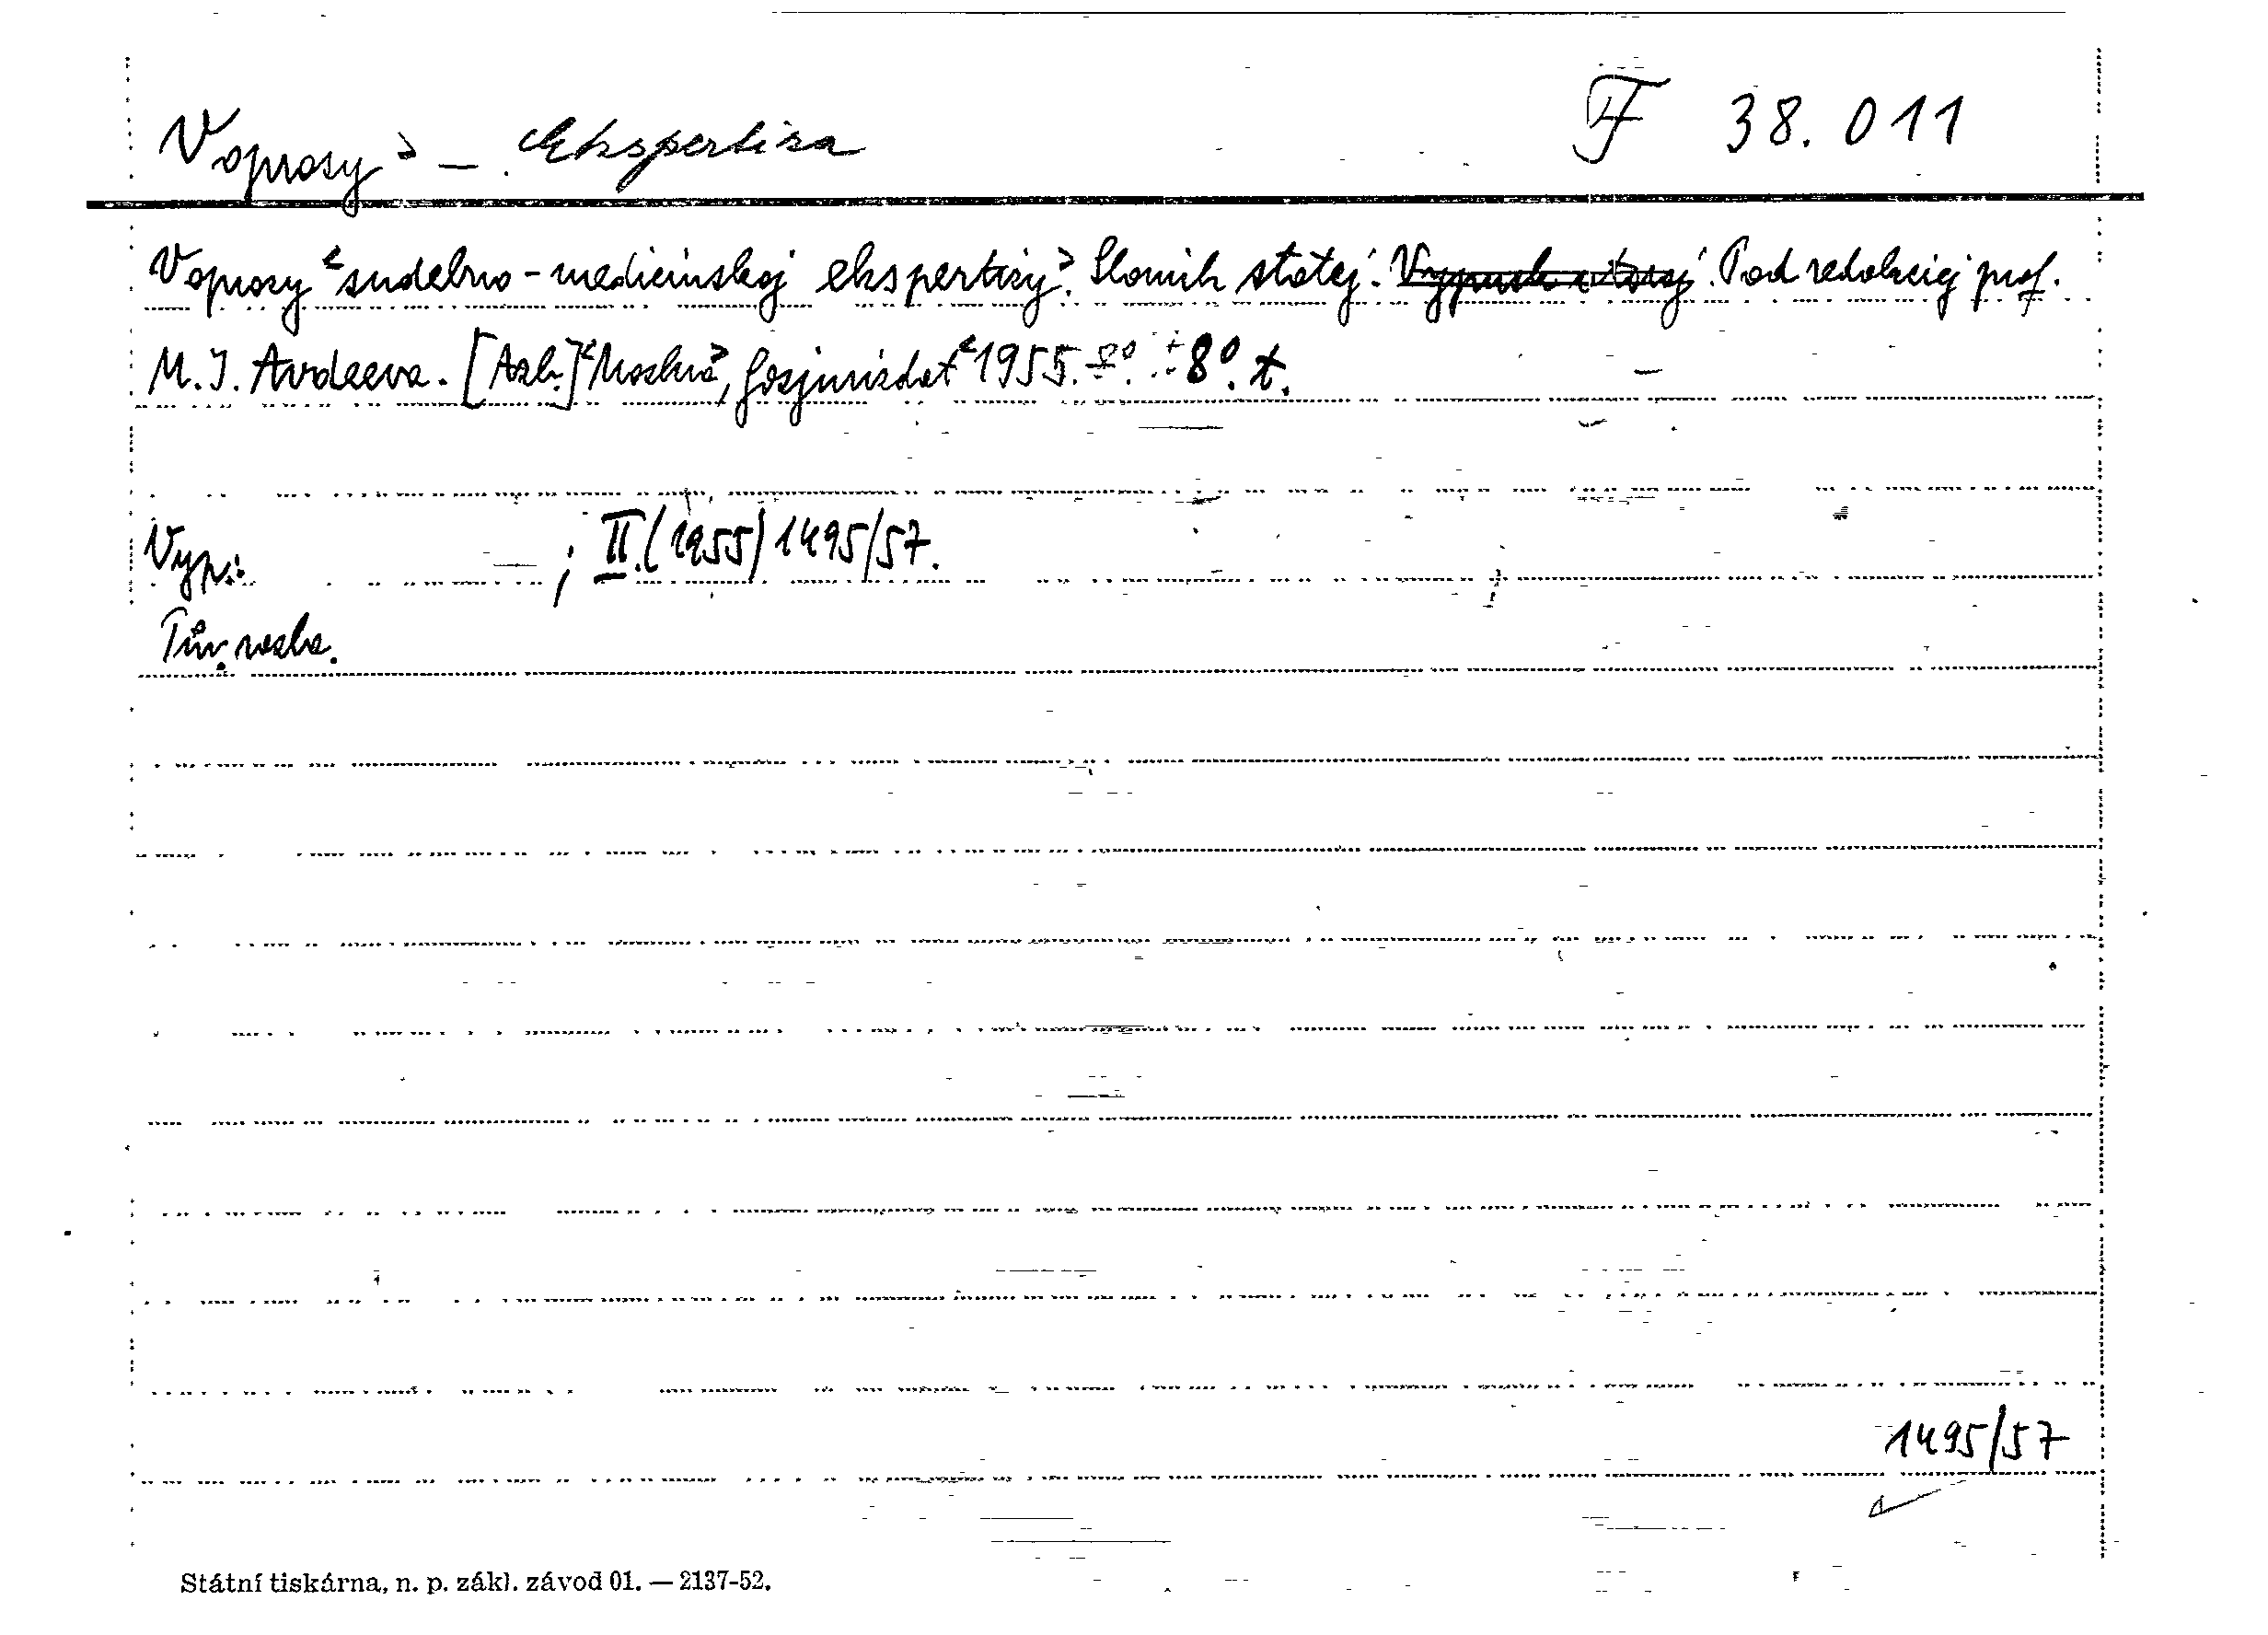 Voprosy - Ekspertiza F 38.011
Voprosy sudebno-medicinskoj ekspertizy. Sbornik statej. Vypusk vtoroj. Pod redakcijej prof.
M. I. Avdeeva. [Azb.] Moskva, Gosjurizdat 1955. 8°. 8°. t.
Vyp.: — ; II. (1955) 1495/57.
Pův. vazba.
1495/57
Státní tiskárna, n. p. zákl. závod 01. — 2137-52.